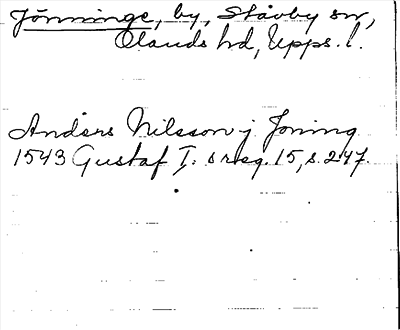 Jönninge, by, Stavby sn,
Olands hd, Upps. l.
Anders Nilsson j Joning
1543 Gustaf I: s reg. 15, s. 247.